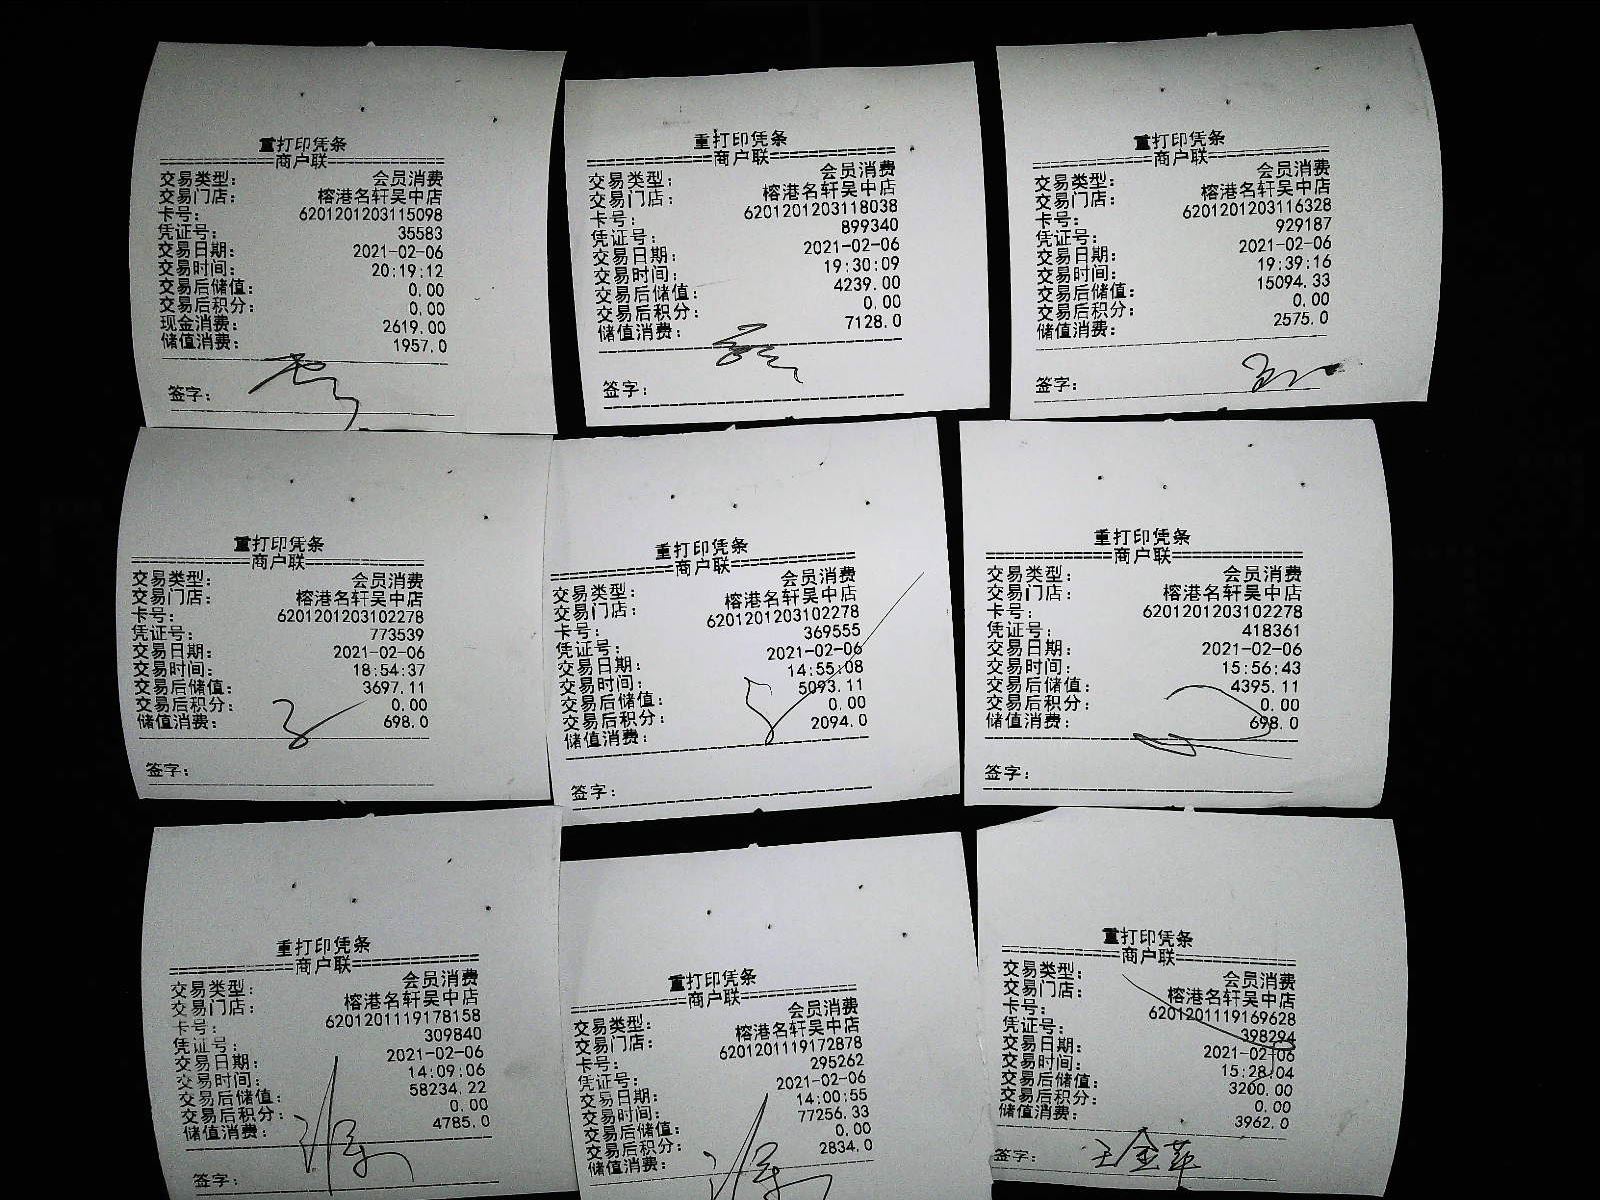 重打印凭条
============商户联============
交易类型： 会员消费
交易门店： 榕港名轩吴中店
卡号： 6201201203115098
凭证号： 35583
交易日期： 2021-02-06
交易时间： 20:19:12
交易后储值： 0.00
交易后积分： 0.00
现金消费： 2619.00
储值消费： 1957.0
签字：
重打印凭条
============商户联============
交易类型： 会员消费
交易门店： 榕港名轩吴中店
卡号： 6201201203118038
凭证号： 899340
交易日期： 2021-02-06
交易时间： 19:30:09
交易后储值： 4239.00
交易后积分： 0.00
储值消费： 7128.0
签字：
重打印凭条
============商户联============
交易类型： 会员消费
交易门店： 榕港名轩吴中店
卡号： 6201201203116328
凭证号： 929187
交易日期： 2021-02-06
交易时间： 19:39:16
交易后储值： 15094.33
交易后积分： 0.00
储值消费： 2575.0
签字：
重打印凭条
============商户联============
交易类型： 会员消费
交易门店： 榕港名轩吴中店
卡号： 6201201203102278
凭证号： 773539
交易日期： 2021-02-06
交易时间： 18:54:37
交易后储值： 3697.11
交易后积分： 0.00
储值消费： 698.0
签字：
重打印凭条
============商户联============
交易类型： 会员消费
交易门店： 榕港名轩吴中店
卡号： 6201201203102278
凭证号： 369555
交易日期： 2021-02-06
交易时间： 14:55:08
交易后储值： 5093.11
交易后积分： 0.00
储值消费： 2094.0
签字：
重打印凭条
============商户联============
交易类型： 会员消费
交易门店： 榕港名轩吴中店
卡号： 6201201203102278
凭证号： 418361
交易日期： 2021-02-06
交易时间： 15:56:43
交易后储值： 4395.11
交易后积分： 0.00
储值消费： 698.0
签字：
重打印凭条
============商户联============
交易类型： 会员消费
交易门店： 榕港名轩吴中店
卡号： 6201201119178158
凭证号： 309840
交易日期： 2021-02-06
交易时间： 14:09:06
交易后储值： 58234.22
交易后积分： 0.00
储值消费： 4785.0
签字：
重打印凭条
============商户联============
交易类型： 会员消费
交易门店： 榕港名轩吴中店
卡号： 6201201119172878
凭证号： 295262
交易日期： 2021-02-06
交易时间： 14:00:55
交易后储值： 77256.33
交易后积分： 0.00
储值消费： 2834.0
重打印凭条
============商户联============
交易类型： 会员消费
交易门店： 榕港名轩吴中店
卡号： 6201201119169628
凭证号： 398294
交易日期： 2021-02-06
交易时间： 15:28:04
交易后储值： 3200.00
交易后积分： 0.00
储值消费： 3962.0
签字： 王金苹